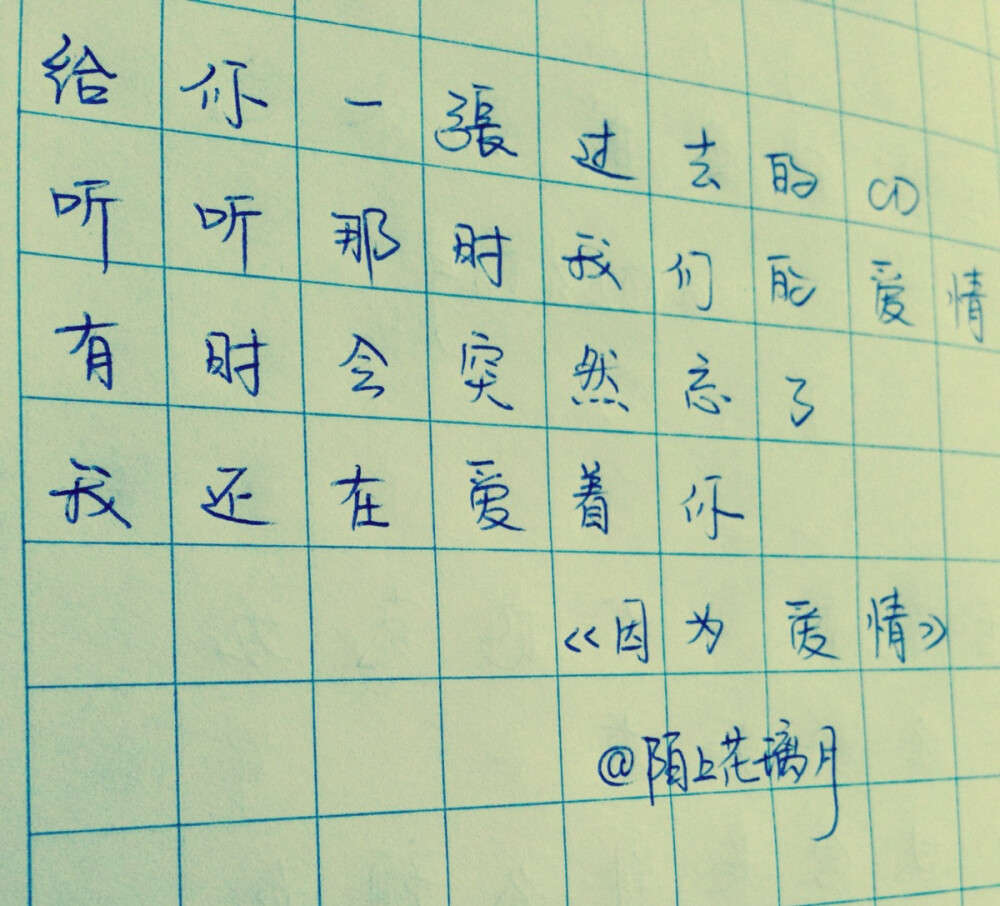 给你一張过去的CD
听听那时我们的爱情
有时会突然忘了
我还在爱着你
《因为爱情》
@陌上花璃月